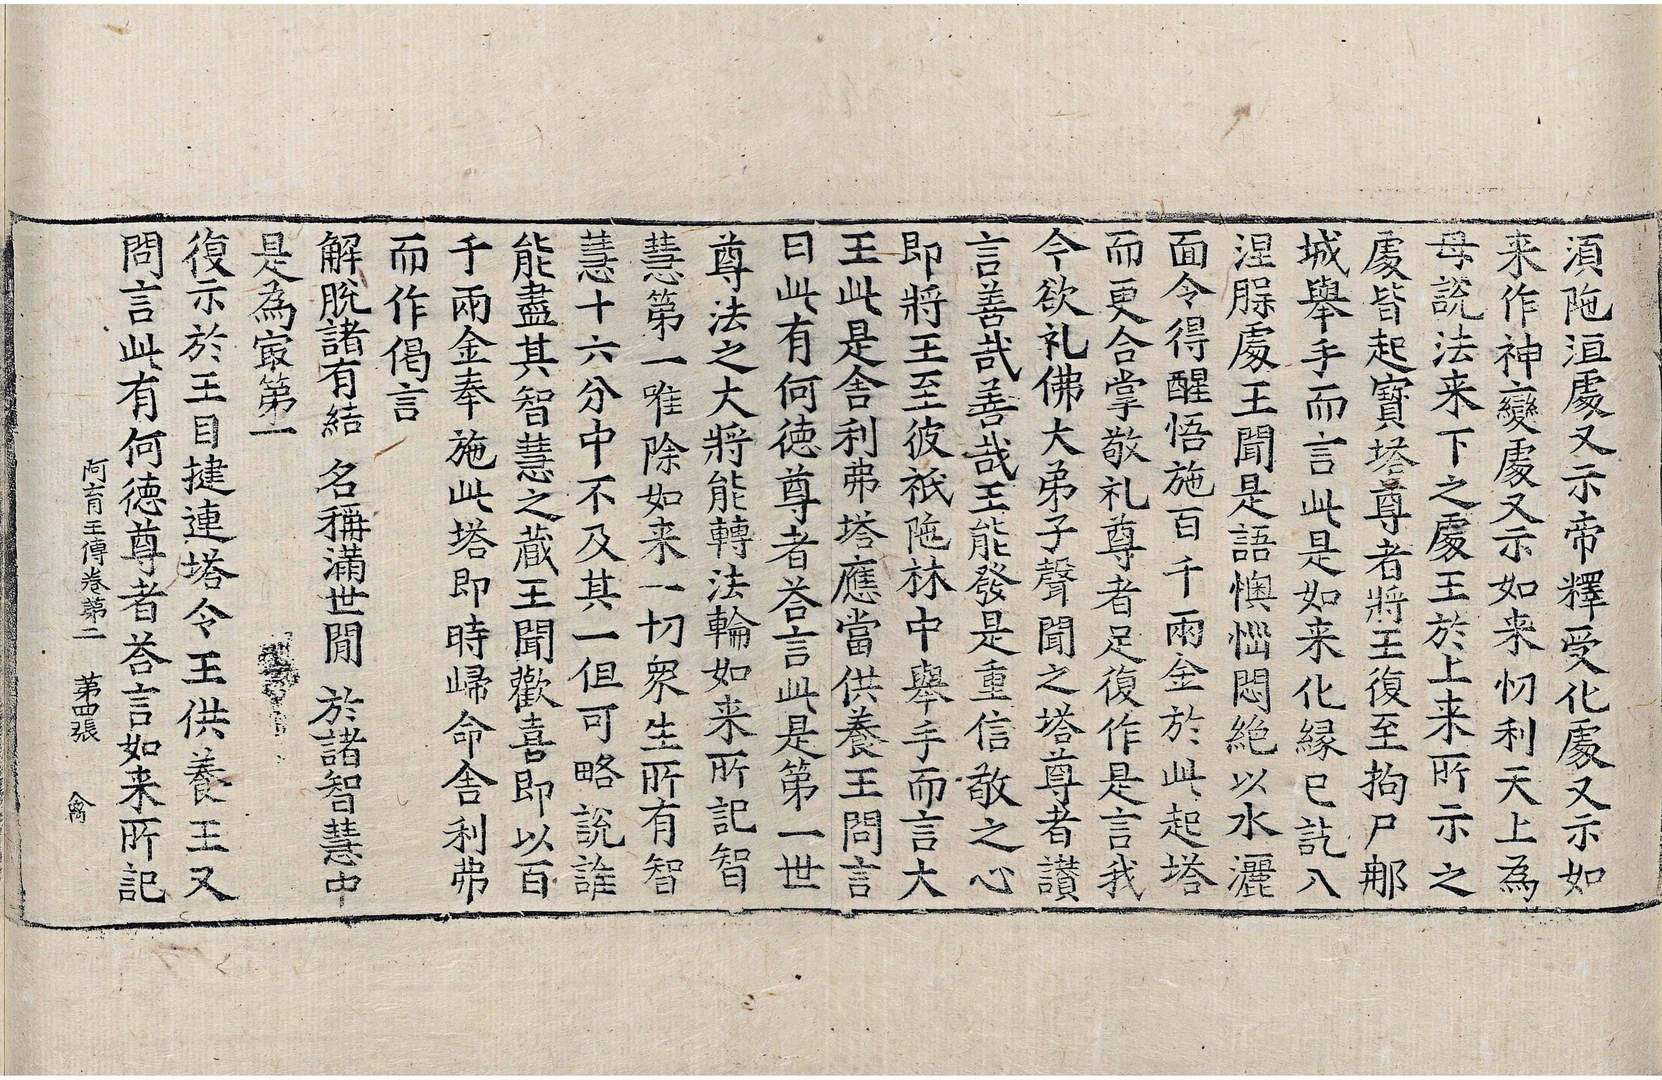 湏陁洹處又示帝釋受化處又示如
来作神變處又示如来忉利天上為
母說法来下之處王於上来所示之
處皆起寶塔尊者將王復至拘尸那
城舉手而言此是如来化緣已訖入
涅槃處王聞是語懊惱悶絕以水灑
面令得醒悟施百千兩金於此起塔
而更合掌敬礼尊者足復作是言我
今欲礼佛大弟子聲聞之塔尊者讃
言善哉善哉王能發是重信敬之心
即將王至彼祇陁林中舉手而言大
王此是舍利弗塔應當供養王問言
曰此有何徳尊者荅言此是第一世
尊法之大將能轉法輪如来所記智
慧第一唯除如来一切衆生所有智
慧十六分中不及其一但可略說誰
能盡其智慧之蔵王聞歡喜即以百
千兩金奉施此塔即時歸命舍利弗
而作偈言
解脫諸有結 名稱滿世閒 於諸智慧中
是為㝡第一
復示於王目揵連塔令王供養王又
問言此有何德尊者荅言如来所記
阿育王傳卷第二 第四張 禽